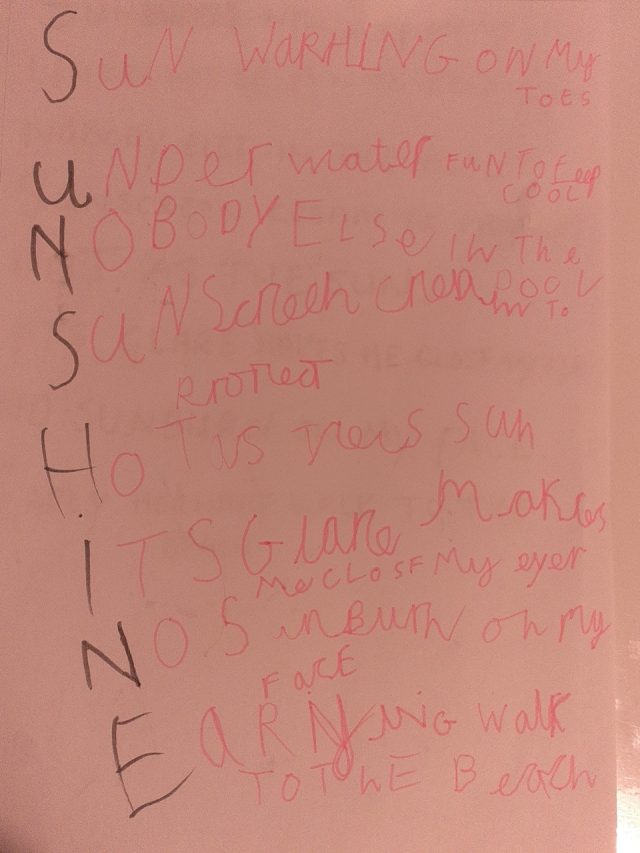 SuN WARMING ON My
TOES
uNDer water FuN TO Keep
COOL
NOBODY ElSe IN The
POOL
SuNScreen cream to
Protect
HOT us
sun
ITS Glare Makes
Me CLOSE My eyes
NO SunBurn on my
FacE
EARNJing walk
TOThE Beach